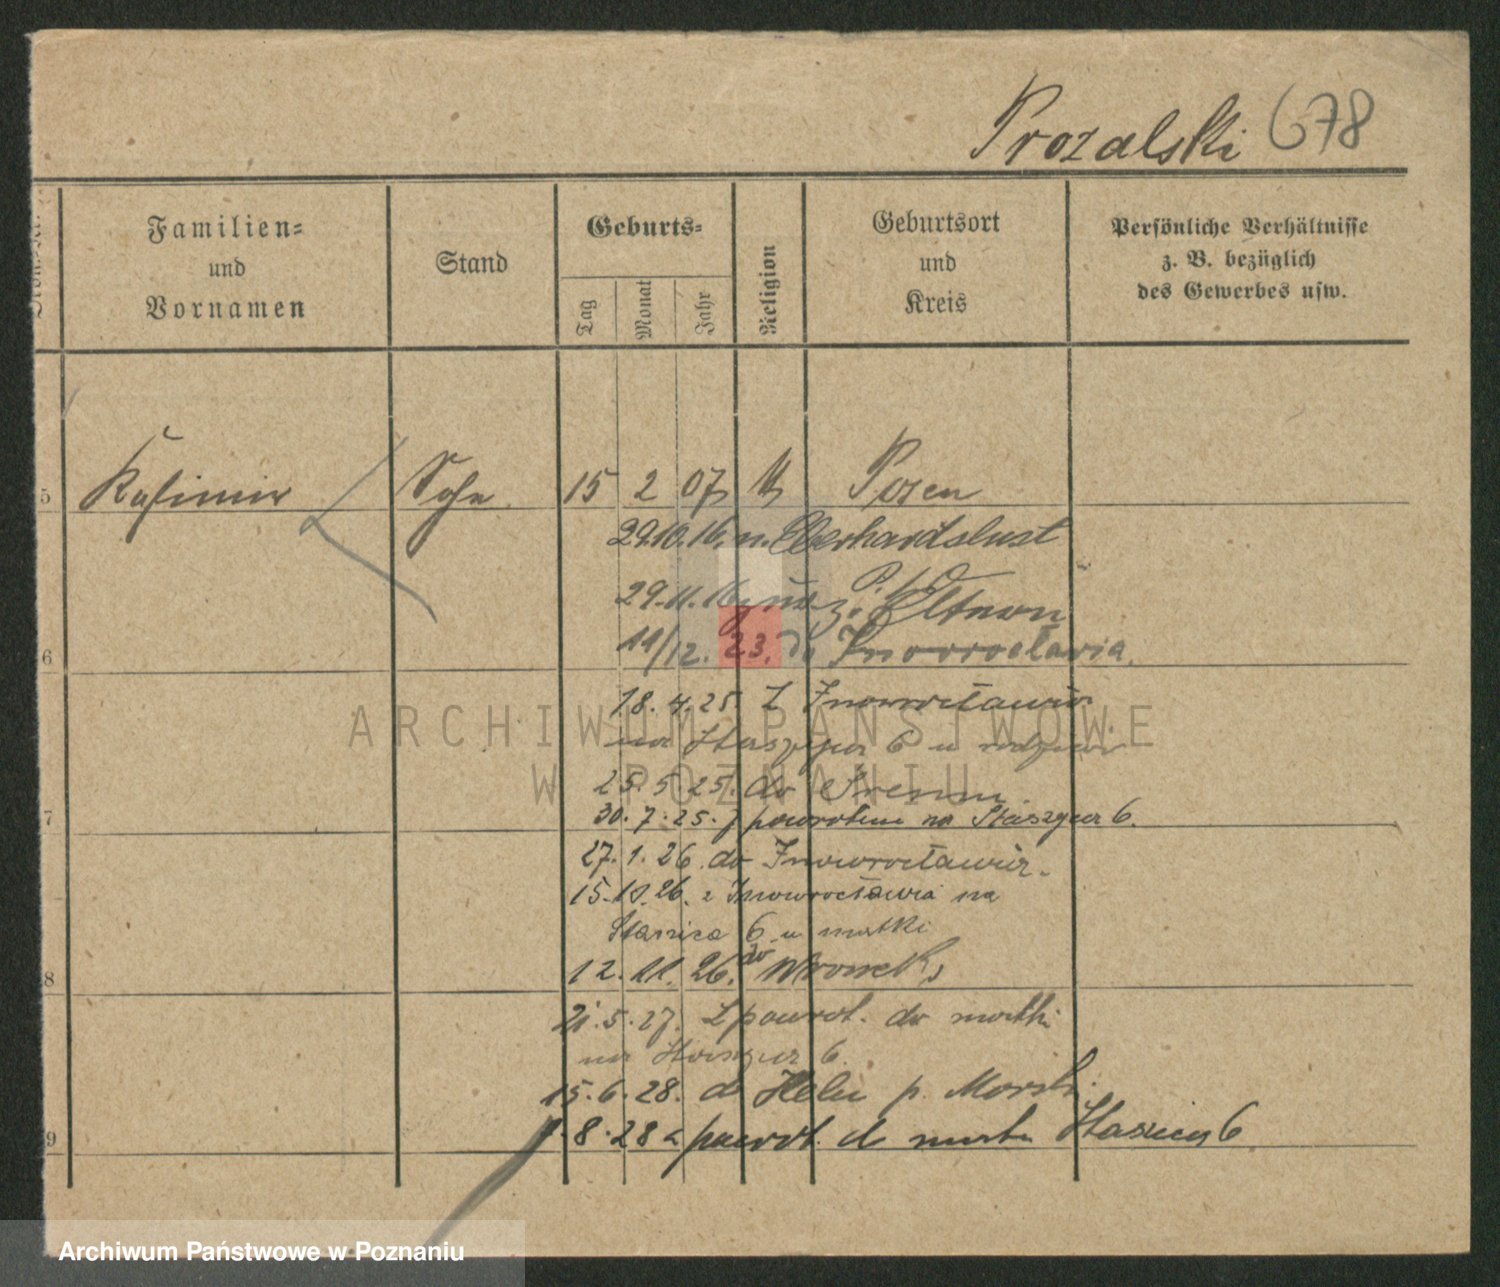 Prozalski 678
Familien=
und
Vornamen
Stand
Geburts=
Tag
Monat
Jahr
Religion
Geburtsort
und
Kreis
Persönliche Verhältnisse
z. B. bezüglich
des Gewerbes usw.
5 Kasimir Sohn 15 2 07 k Posen
29.10.16. n. Eberhardslust
29.11.16
6 11/12. 23. do Inowrocławia.
18.4.25 z Inowrocławia
na Staszyca 6 u
ARCHIWUM PAŃSTWOWE
W POZNANIU
25.5.25. do Śremu.
7 30.7.25. z powrotem na Staszyca 6.
27.1.26. do Inowrocławia.
15.10.26. z Inowrocławia na
Staszica 6 u matki
8 12.11.26. do Wronek
21.5.27. z powrot. do matki
na Staszyca 6.
15.6.28. do Helu p. Morski
9 7.8.28 z powrot. d matki Staszica 6
Archiwum Państwowe w Poznaniu